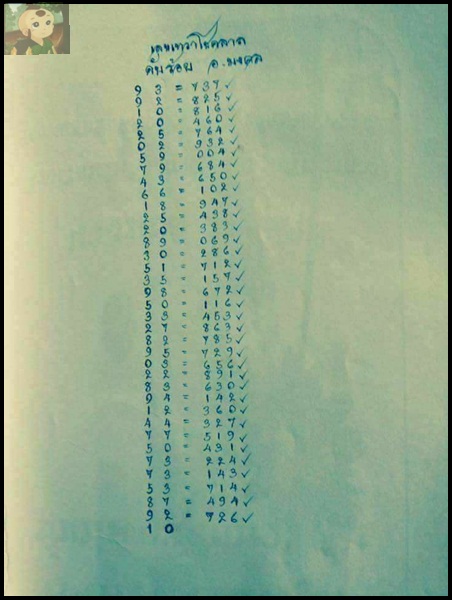 เลขเทวาโชคลาภ
ดับร้อย อ.มงคล
9 3 = 737 ✓
9 2 = 825 ✓
1 0 = 816 ✓
2 0 = 460 ✓
2 5 = 764 ✓
0 2 = 932 ✓
5 9 = 004 ✓
7 9 = 684 ✓
4 3 = 650 ✓
6 6 = 102 ✓
1 8 = 947 ✓
2 5 = 438 ✓
2 0 = 383 ✓
8 9 = 069 ✓
3 0 = 286 ✓
5 1 = 712 ✓
3 5 = 157 ✓
9 8 = 672 ✓
5 0 = 116 ✓
3 3 = 453 ✓
2 7 = 863 ✓
8 2 = 785 ✓
9 5 = 729 ✓
0 3 = 656 ✓
2 2 = 891 ✓
8 3 = 630 ✓
9 4 = 142 ✓
1 2 = 360 ✓
4 4 = 327 ✓
7 7 = 519 ✓
5 0 = 431 ✓
7 3 = 224 ✓
7 3 = 143 ✓
5 3 = 714 ✓
8 7 = 494 ✓
9 2 = 726 ✓
1 0